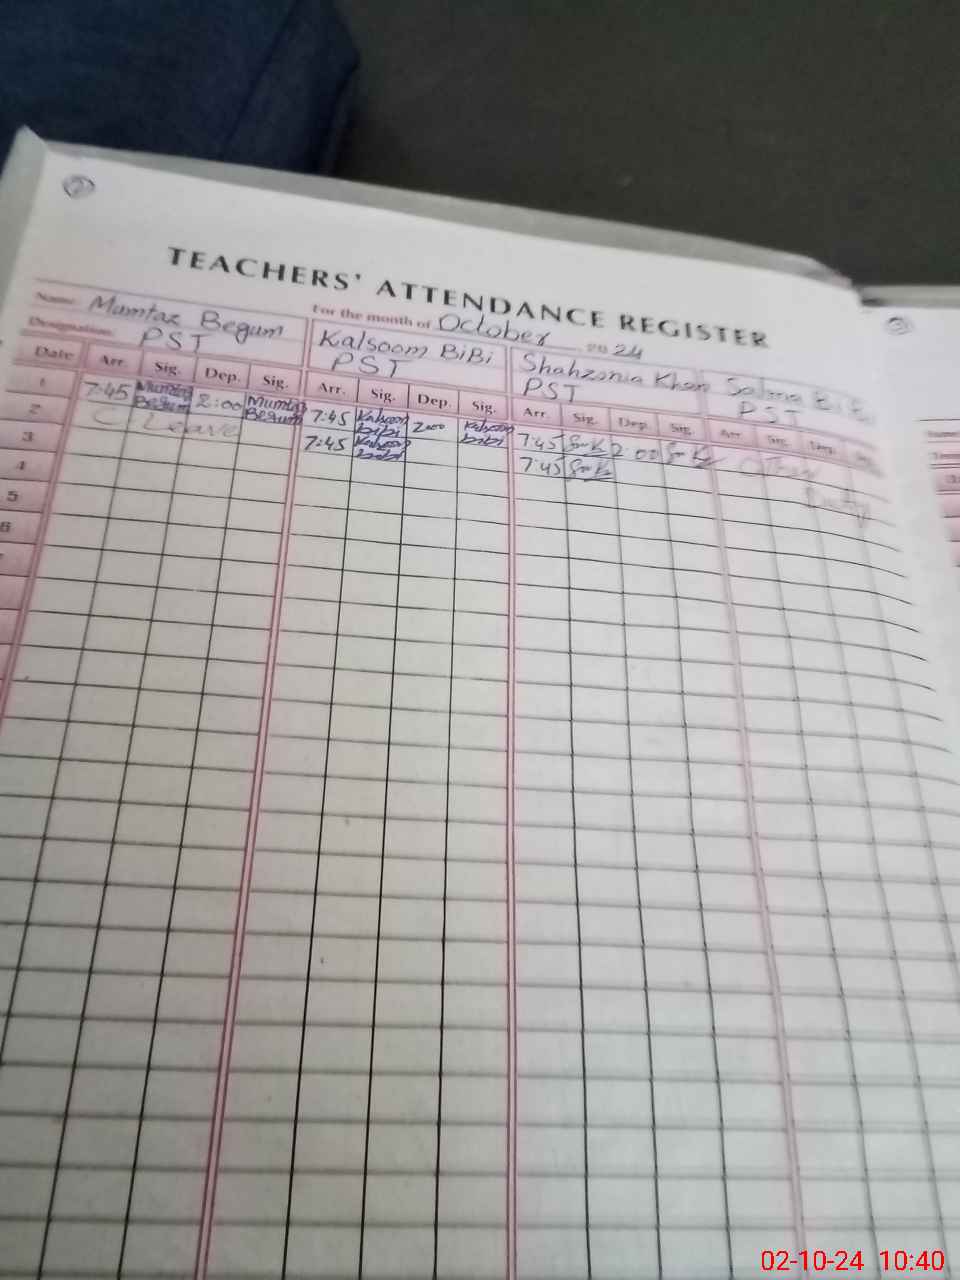 2
TEACHERS' ATTENDANCE REGISTER
For the month of October 2024
Name: Mumtaz Begum Kalsoom BiBi Shahzonia Khan Salma Bi Bi
Designation: PST PST PST PST
Date Arr. Sig. Dep. Sig. Arr. Sig. Dep. Sig. Arr. Sig. Dep. Sig. Arr. Sig. Dep. Sig.
1 7:45 Mumtaz Begum 2:00 Mumtaz Begum 7:45 Kalsoom bibi 2:00 Kalsoom bibi 7:45 2:00 Other
2 C. Leave 7:45 Kalsoom bibi 7:45 Duty
3
4
5
6
3
Name:
02-10-24 10:40